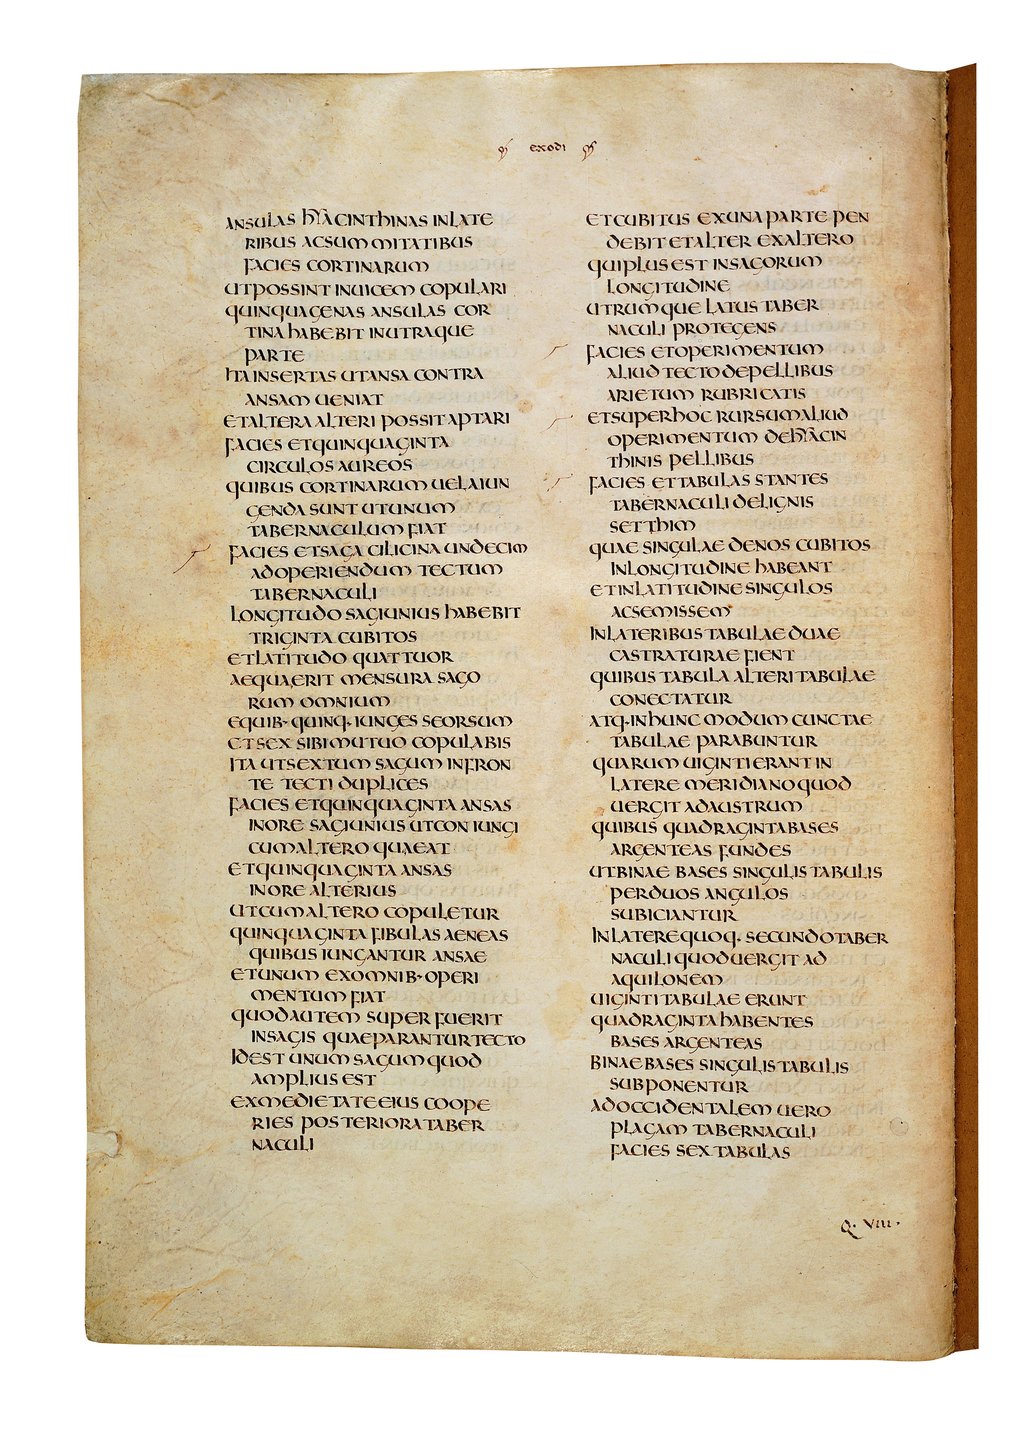 EXODI
ANSULAS HYACINTHINAS INLATE
RIBUS ACSUMMITATIBUS
FACIES CORTINARUM
UTPOSSINT INUICEM COPULARI
QUINQUAGENAS ANSULAS COR
TINA HABEBIT INUTRAQUE
PARTE
ITA INSERTAS UTANSA CONTRA
ANSAM UENIAT
ETALTERA ALTERI POSSIT APTARI
FACIES ETQUINQUAGINTA
CIRCULOS AUREOS
QUIBUS CORTINARUM UELA IUN
GENDA SUNT UTUNUM
TABERNACULUM FIAT
FACIES ETSAGA CILICINA UNDECIM
ADOPERIENDUM TECTUM
TABERNACULI
LONGITUDO SAGIUNIUS HABEBIT
TRIGINTA CUBITOS
ETLATITUDO QUATTUOR
AEQUA ERIT MENSURA SAGO
RUM OMNIUM
EQUIB· QUINQ· IUNGES SEORSUM
ETSEX SIBIMUTUO COPULABIS
ITA UTSEXTUM SAGUM INFRON
TE TECTI DUPLICES
FACIES ETQUINQUAGINTA ANSAS
INORE SAGIUNIUS UTCONIUNGI
CUMALTERO QUAEAT
ETQUINQUAGINTA ANSAS
INORE ALTERIUS
UTCUMALTERO COPULETUR
QUINQUAGINTA FIBULAS AENEAS
QUIBUS IUNGANTUR ANSAE
ETUNUM EXOMNIB· OPERI
MENTUM FIAT
QUODAUTEM SUPER FUERIT
INSAGIS QUAEPARANTURTECTO
IDEST UNUM SAGUM QUOD
AMPLIUS EST
EXMEDIETATE EIUS COOPE
RIES POSTERIORA TABER
NACULI
ETCUBITUS EXUNA PARTE PEN
DEBIT ETALTER EXALTERO
QUIPLUS EST INSAGORUM
LONGITUDINE
UTRUMQUE LATUS TABER
NACULI PROTEGENS
FACIES ETOPERIMENTUM
ALIUD TECTO DEPELLIBUS
ARIETUM RUBRICATIS
ETSUPERHOC RURSUMALIUD
OPERIMENTUM DEHYACIN
THINIS PELLIBUS
FACIES ETTABULAS STANTES
TABERNACULI DELIGNIS
SETTHIM
QUAE SINGULAE DENOS CUBITOS
INLONGITUDINE HABEANT
ETINLATITUDINE SINGULOS
ACSEMISSEM
INLATERIBUS TABULAE DUAE
CASTRATURAE FIENT
QUIBUS TABULA ALTERI TABULAE
CONECTATUR
ATQ· INHUNC MODUM CUNCTAE
TABULAE PARABUNTUR
QUARUM UIGINTI ERANT IN
LATERE MERIDIANO QUOD
UERGIT ADAUSTRUM
QUIBUS QUADRAGINTA BASES
ARGENTEAS FUNDES
UTBINAE BASES SINGULIS TABULIS
PERDUOS ANGULOS
SUBICIANTUR
INLATERE QUOQ· SECUNDO TABER
NACULI QUOD UERGIT AD
AQUILONEM
UIGINTI TABULAE ERUNT
QUADRAGINTA HABENTES
BASES ARGENTEAS
BINAE BASES SINGULIS TABULIS
SUBPONENTUR
ADOCCIDENTALEM UERO
PLAGAM TABERNACULI
FACIES SEX TABULAS
Q· VIII·